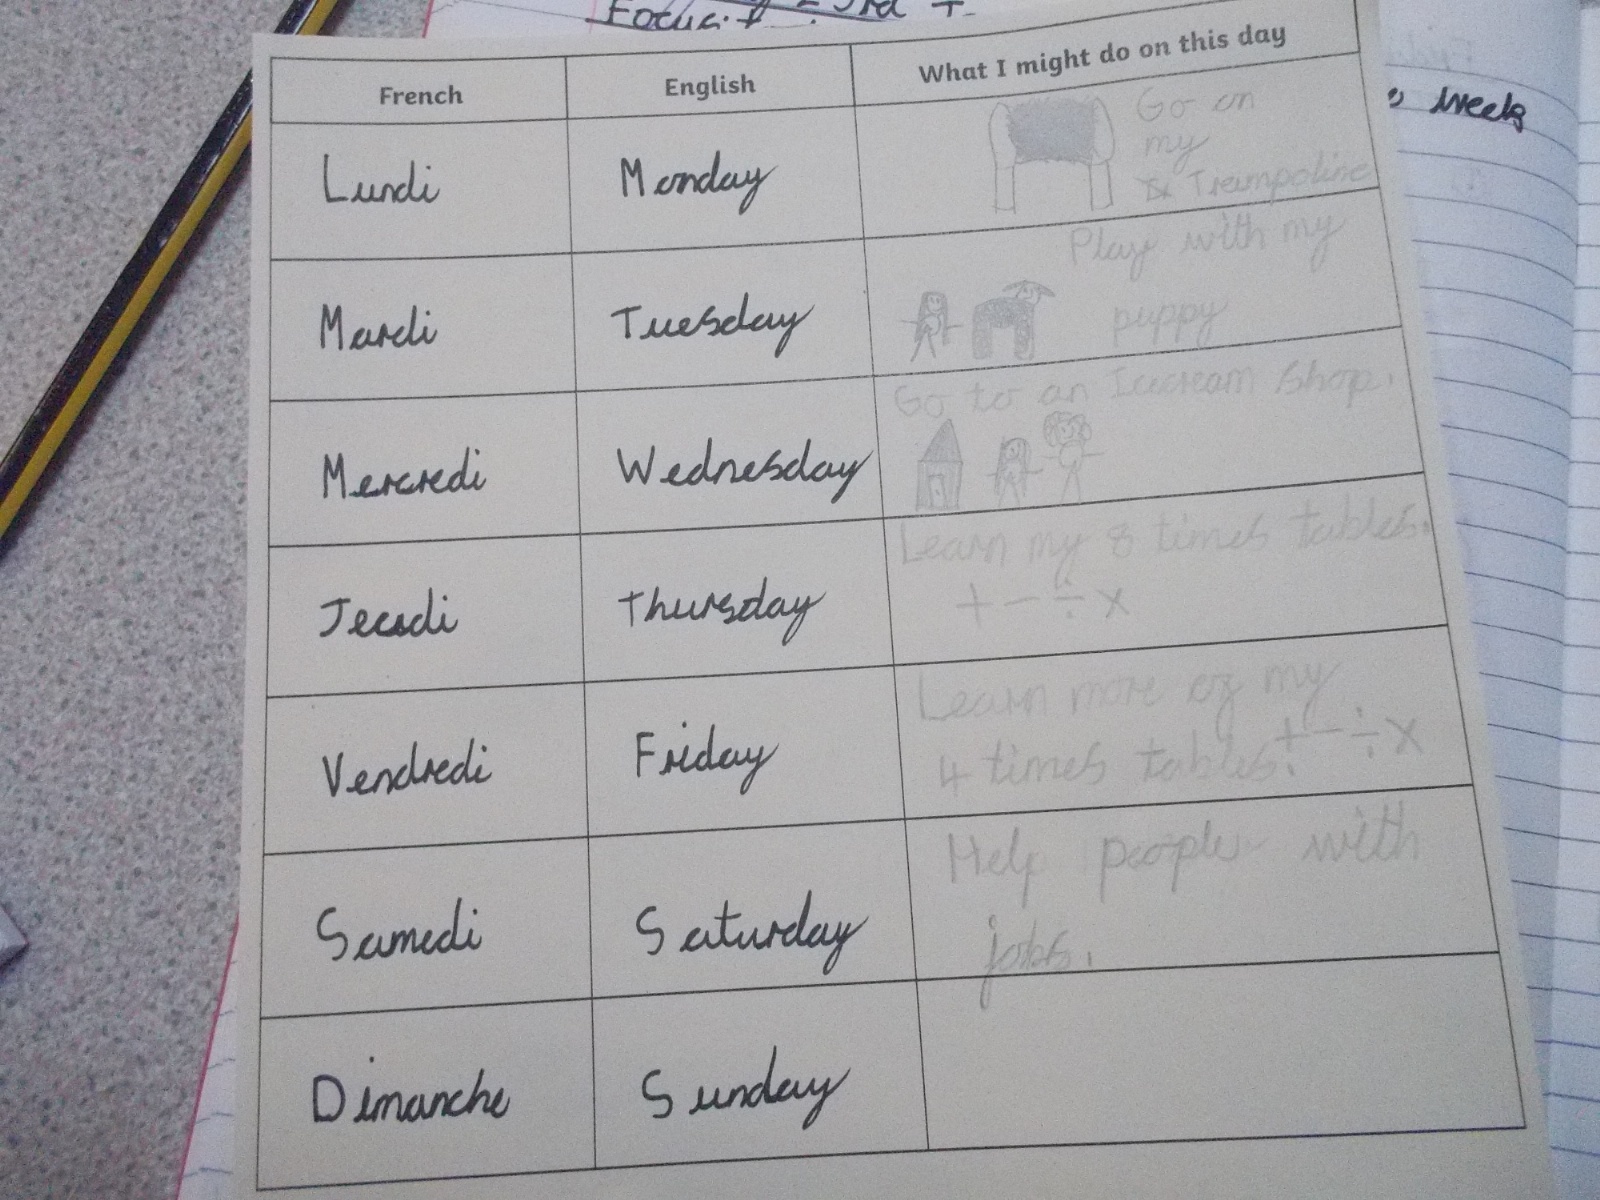 French English What I might do on this day
Lundi Monday Go on
my
Trampoline
Mardi Tuesday Play with my
puppy
Mercredi Wednesday Go to an Icecream shop.
Jeudi Thursday Learn my 8 times tables.
+ - ÷ x
Vendredi Friday Learn more of my
4 times tables. + - ÷ x
Samedi Saturday Help people with
jobs.
Dimanche Sunday
week